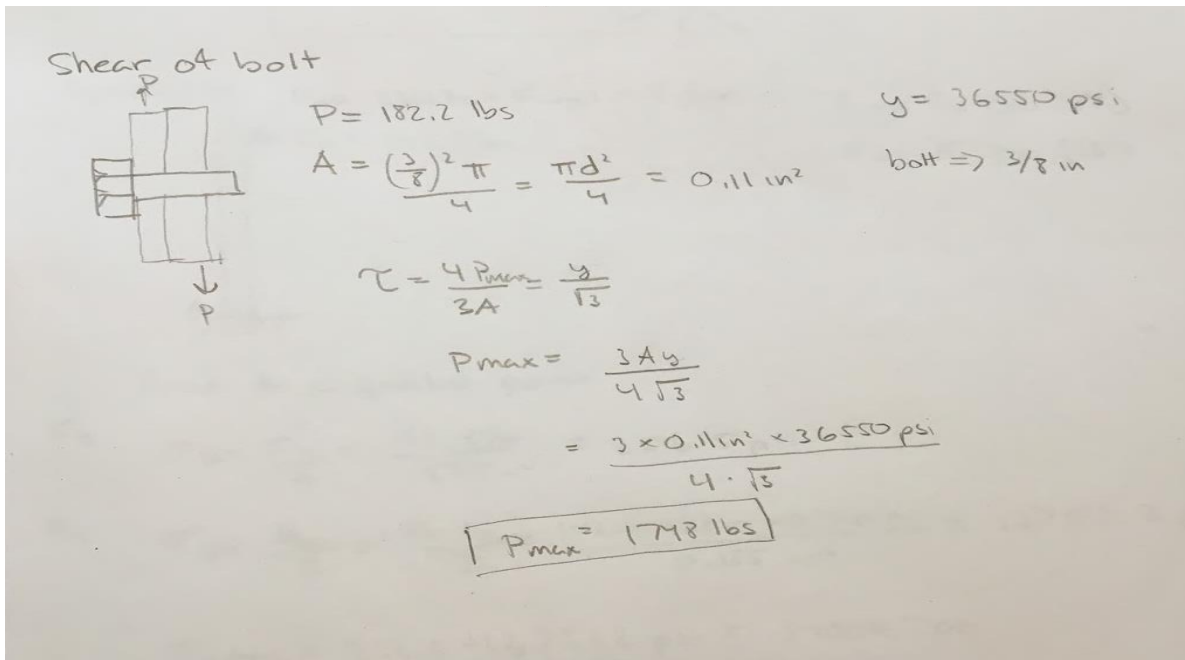 Shear of bolt
P
P = 182.2 lbs
y = 36550 psi
A = (3/8)² π / 4 = πd² / 4 = 0.11 in²
bolt => 3/8 in
τ = 4 Pmax / 3A = y / √3
P
Pmax = 3 A y / 4 √3
= 3 × 0.11 in² × 36550 psi / 4 · √3
Pmax = 1748 lbs